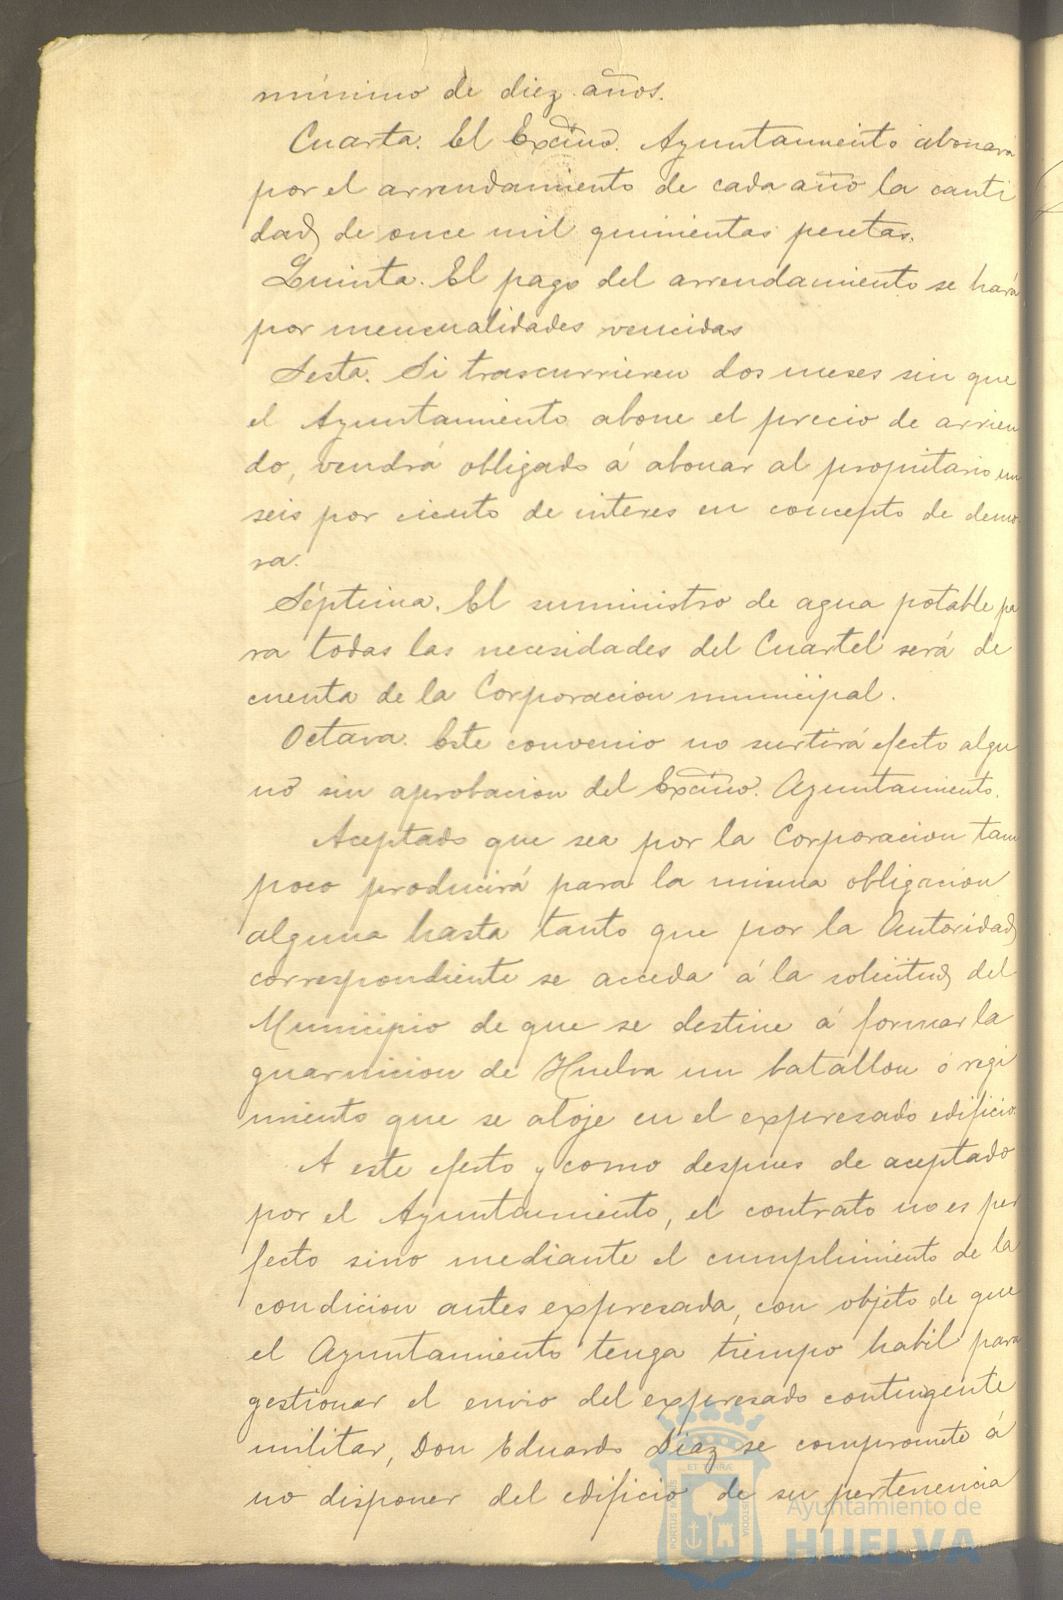 mínimo de diez años.
Cuarta. El Excmo. Ayuntamiento abonará
por el arrendamiento de cada año la canti
dad de once mil quinientas pesetas.
Quinta. El pago del arrendamiento se hará
por mensualidades vencidas
Sesta. Si trascurrieren dos meses sin que
el Ayuntamiento abone el precio de arrien
do, vendrá obligado á abonar al propietario un
seis por ciento de interes en concepto de demo
ra.
Séptima. El suministro de agua potable pa
ra todas las necesidades del Cuartel será de
cuenta de la Corporacion municipal.
Octava. Este convenio no surtirá efecto algu
no sin aprobacion del Excmo. Ayuntamiento.
Aceptado que sea por la Corporacion tam
poco producirá para la misma obligacion
alguna hasta tanto que por la Autoridad
correspondiente se acceda á la solicitud del
Municipio de que se destine á formar la
guarnicion de Huelva un batallon ó regi
miento que se aloje en el expresado edificio.
A este efecto y como despues de aceptado
por el Ayuntamiento, el contrato no es per
fecto sino mediante el cumplimiento de la
condicion antes expresada, con objeto de que
el Ayuntamiento tenga tiempo habil para
gestionar el envio del expresado contingente
militar, Don Eduardo Diaz se compromete á
no disponer del edificio de su pertenencia
PORTUS MARIS ET TERRÆ CUSTODIA
Ayuntamiento de
HUELVA